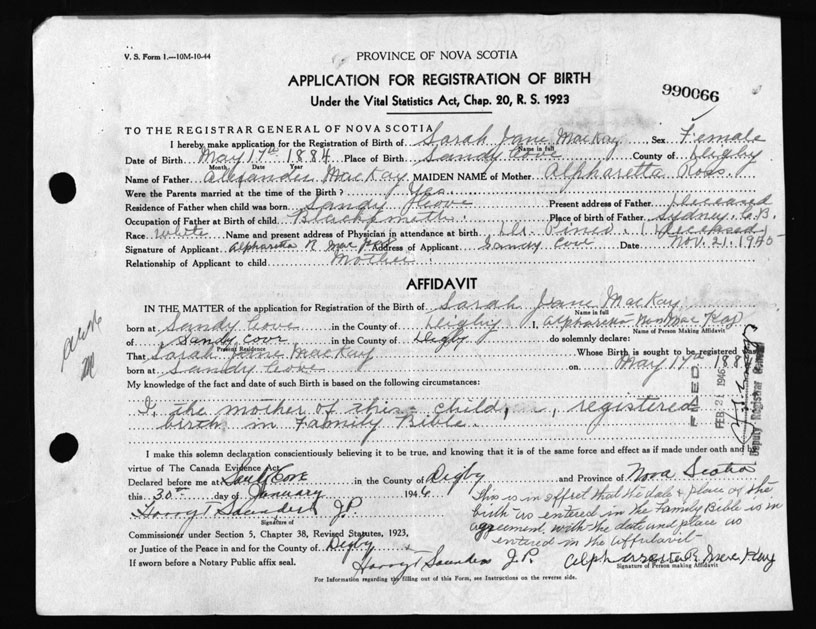 V. S. Form 1.—10M-10-44
PROVINCE OF NOVA SCOTIA
APPLICATION FOR REGISTRATION OF BIRTH
Under the Vital Statistics Act, Chap. 20, R. S. 1923
990066
TO THE REGISTRAR GENERAL OF NOVA SCOTIA
I hereby make application for the Registration of Birth of Sarah Jane MacKay, Sex Female
Name in full
Date of Birth May 17th 1884 Place of Birth Sandy Cove County of Digby
Month Date Year
Name of Father Alexander MacKay MAIDEN NAME of Mother Alpharetta Ross
Were the Parents married at the time of the Birth? Yes
Residence of Father when child was born Sandy Cove Present address of Father Deceased
Occupation of Father at Birth of child Blacksmith Place of birth of Father Sydney C.B.
Race White Name and present address of Physician in attendance at birth Dr. (Deceased)
Signature of Applicant Alpharetta R MacKay Address of Applicant Sandy Cove Date Nov. 21. 1945
Relationship of Applicant to child Mother
AFFIDAVIT
IN THE MATTER of the application for Registration of the Birth of Sarah Jane MacKay
Name in full
born at Sandy Cove in the County of Digby I, Alpharetta Ross MacKay
Name of Person Making Affidavit
of Sandy Cove in the County of Digby do solemnly declare:
Present Residence
That Sarah Jane MacKay Whose Birth is sought to be registered was
born at Sandy Cove on May 17th 1884
My knowledge of the fact and date of such Birth is based on the following circumstances:
I, the mother of this child, registered
birth in Family Bible.
FILED
FEB 21 1946
Deputy Registrar General
I make this solemn declaration conscientiously believing it to be true, and knowing that it is of the same force and effect as if made under oath and by
virtue of The Canada Evidence Act.
Declared before me at Sandy Cove in the County of Digby and Province of Nova Scotia
this 30th day of January 1946
This is in effect that the date & place of the
birth as entered in the Family Bible is in
agreement with the date and place as
entered in the affidavit
Harry T Saunders J.P.
Signature of
Commissioner under Section 5, Chapter 38, Revised Statutes, 1923,
or Justice of the Peace in and for the County of Digby
If sworn before a Notary Public affix seal. Harry T Saunders J.P. Alpharetta R MacKay
Signature of Person making Affidavit
For Information regarding the filling out of this Form, see Instructions on the reverse side.